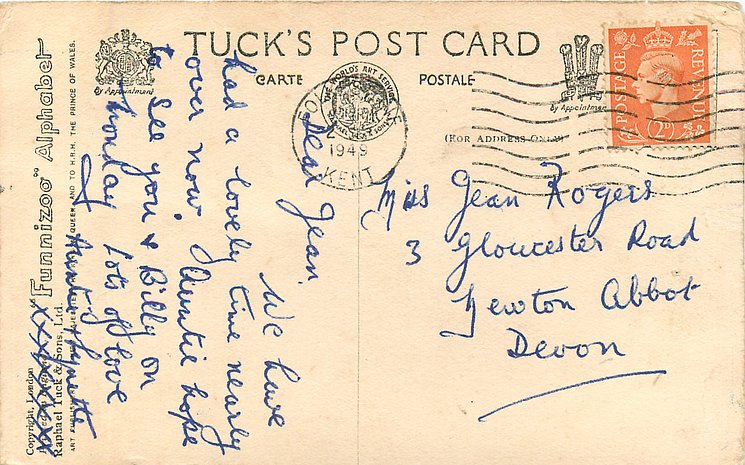 TUCK'S POST CARD
CARTE POSTALE
By Appointment
By Appointment
(FOR ADDRESS ONLY)
POSTAGE REVENUE
2D
THE WORLD'S ART SERVICE
1949
KENT
Dear Jean,
We have
had a lovely time nearly
over now. Auntie hope
to see you & Billy on
Monday Lots of love
Aunty & Lynette
xxxxxxx
Miss Jean Rogers
3 Gloucester Road
Newton Abbot
Devon
"Funnizoo" Alphabet
Copyright, London
Raphael Tuck & Sons, Ltd.
QUEEN AND TO H.R.H. THE PRINCE OF WALES.